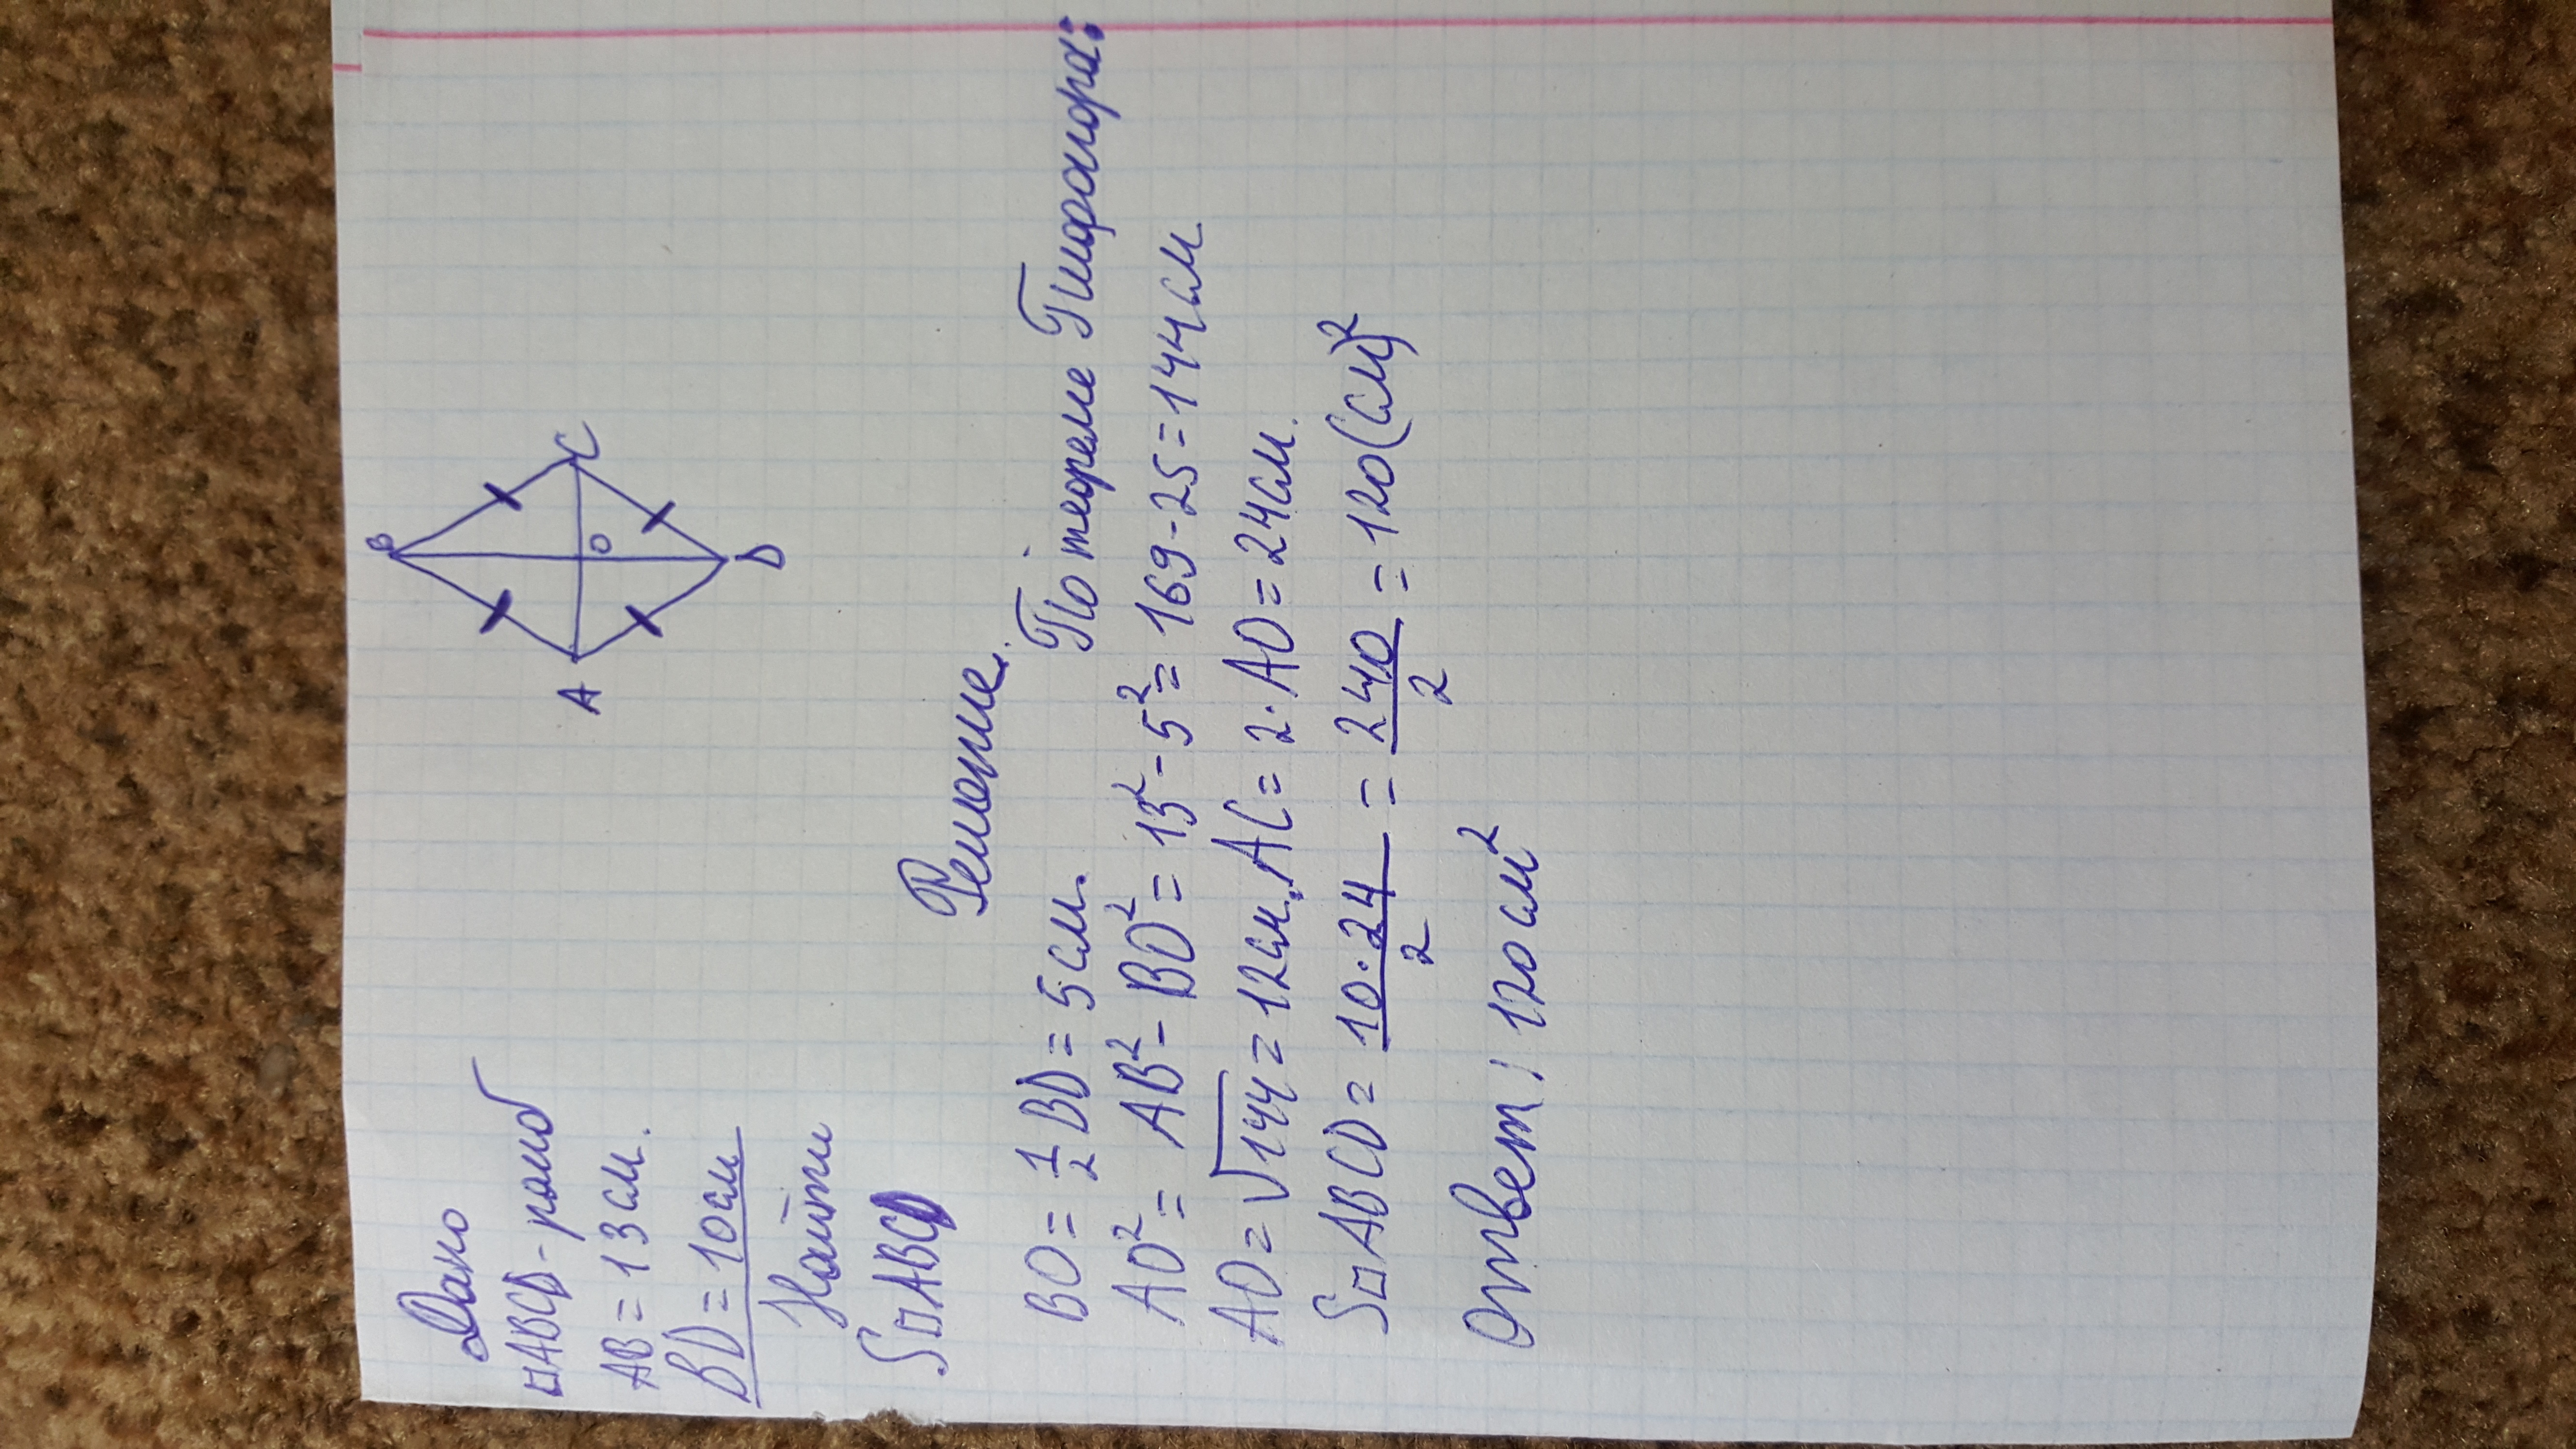 Дано
□ABCD-ромб
AB=13см.
BD=10см
Найти
S□ABCD
B
A
C
O
D
Решение.
BO=1/2 BD=5см. По теореме Пифагора:
AO²=AB²-BO²=13²-5²=169-25=144см
AO=√144=12см, AC=2·AO=24см.
S□ABCD=10·24/2=240/2=120(см)²
Ответ: 120см²